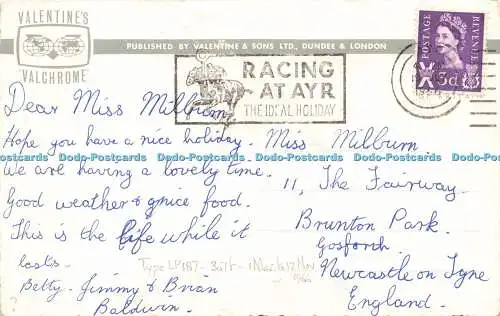 VALENTINE'S
"VALCHROME"
PUBLISHED BY VALENTINE & SONS LTD., DUNDEE & LONDON
POSTAGE
REVENUE
3d
RACING
AT AYR
THE IDEAL HOLIDAY
Dear Miss Milburn,
Hope you have a nice holiday.
We are having a lovely time.
Good weather & nice food.
This is the life while it
lasts.
Betty - Jimmy & Brian
Baldwin.
Miss Milburn
11, The Fairway.
Brunton Park.
Gosforth
Newcastle on Tyne
England.
Dodo-Postcards Dodo-Postcards Dodo-Postcards Dodo-Postcards Dodo-Postcards Dodo-Postcards
Dodo-Postcards Dodo-Postcards Dodo-Postcards Dodo-Postcards Dodo-Postcards Dodo-Postcards